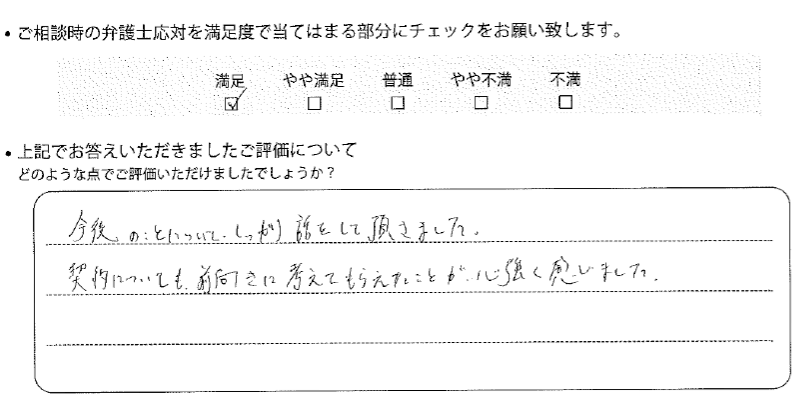 • ご相談時の弁護士応対を満足度で当てはまる部分にチェックをお願い致します。
満足 やや満足 普通 やや不満 不満
☑ ☐ ☐ ☐ ☐
• 上記でお答えいただきましたご評価について
どのような点でご評価いただけましたでしょうか？
今後のことについて、しっかり話をして頂きました。
契約についても、前向きに考えてもらえたことが、心強く感じました。